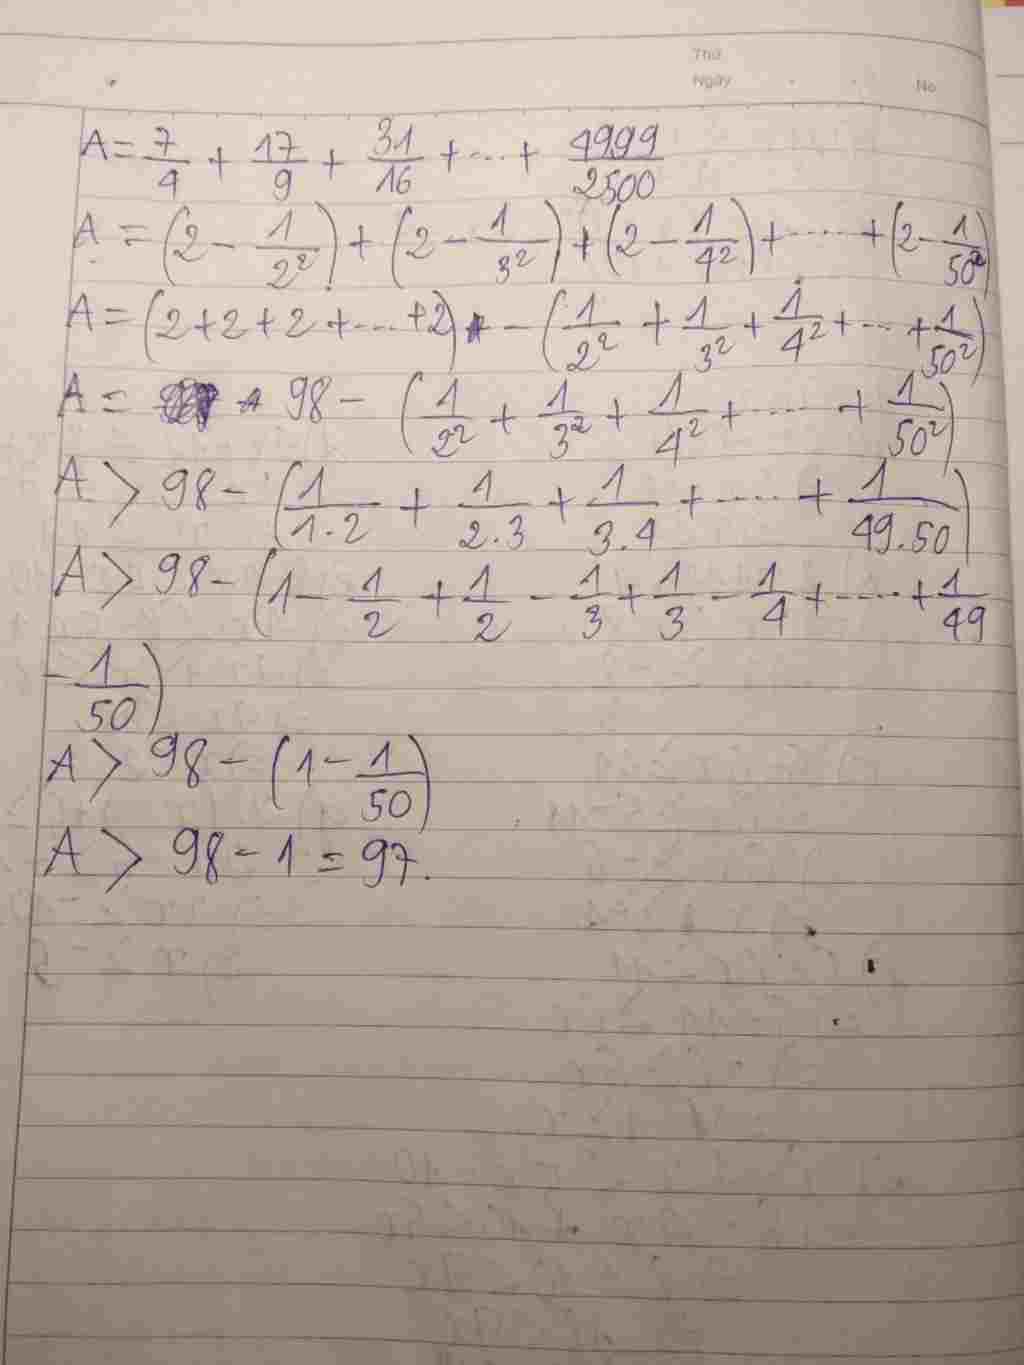 Thứ
Ngày No
A = 7/4 + 17/9 + 31/16 + ... + 4999/2500
A = (2 - 1/2²) + (2 - 1/3²) + (2 - 1/4²) + ..... + (2 - 1/50²)
A = (2 + 2 + 2 + ... + 2) - (1/2² + 1/3² + 1/4² + ... + 1/50²)
A = 98 - (1/2² + 1/3² + 1/4² + ..... + 1/50²)
A > 98 - (1/1.2 + 1/2.3 + 1/3.4 + ..... + 1/49.50)
A > 98 - (1 - 1/2 + 1/2 - 1/3 + 1/3 - 1/4 + ..... + 1/49
- 1/50)
A > 98 - (1 - 1/50)
A > 98 - 1 = 97.